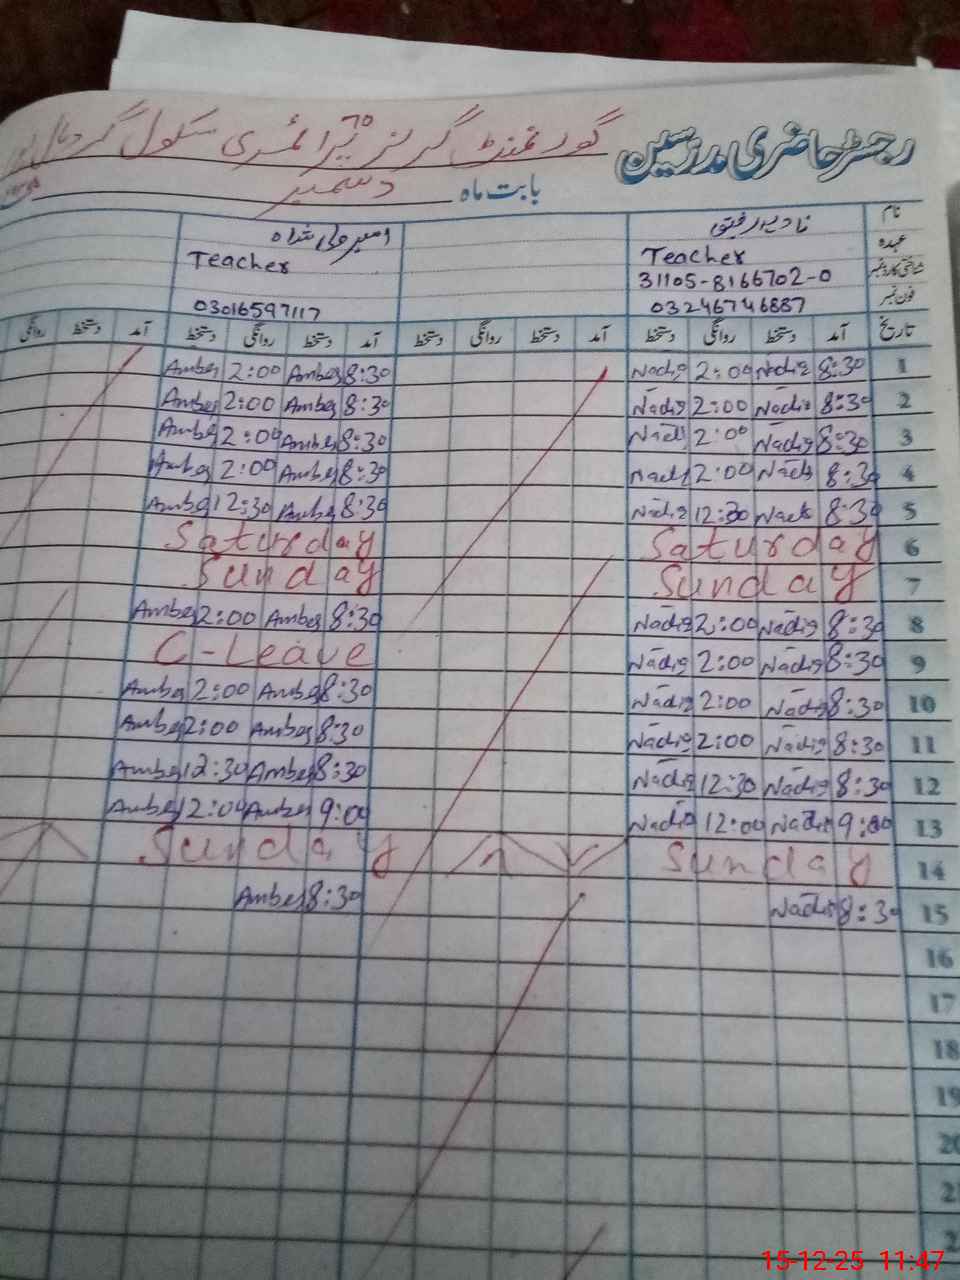 رجسٹر حاضری مدرسین گورنمنٹ گرلز پرائمری سکول
بابت ماہ دسمبر
نام نادیہ رفیق
عہدہ Teacher Teacher
شناختی کارڈ نمبر 31105-8166702-0
فون نمبر 03246746887 03016597117
تاریخ آمد دستخط روانگی دستخط آمد دستخط روانگی دستخط آمد دستخط روانگی دستخط آمد دستخط روانگی
1 8:30 Nadia 2:00 Nadia 8:30 Amber 2:00 Amber
2 8:30 Nadia 2:00 Nadia 8:30 Amber 2:00 Amber
3 8:30 Nadia 2:00 Nadi 8:30 Amber 2:00 Amber
4 8:30 Nadi 2:00 Nadi 8:30 Amber 2:00 Amber
5 8:30 Nadi 12:30 Nadia 8:30 Amber 12:30 Amber
6 Saturday Saturday
7 Sunday Sunday
8 8:30 Nadia 2:00 Nadia 8:30 Amber 2:00 Amber
9 8:30 Nadia 2:00 Nadia C-Leave
10 8:30 Nadia 2:00 Nadia 8:30 Amber 2:00 Amber
11 8:30 Nadia 2:00 Nadia 8:30 Amber 2:00 Amber
12 8:30 Nadia 12:30 Nadia 8:30 Amber 12:30 Amber
13 9:00 Nadia 12:00 Nadia 9:00 Amber 12:00 Amber
14 Sunday Sunday
15 8:30 Nadia 8:30 Amber
16
17
18
19
20
21
15-12-25 11:47